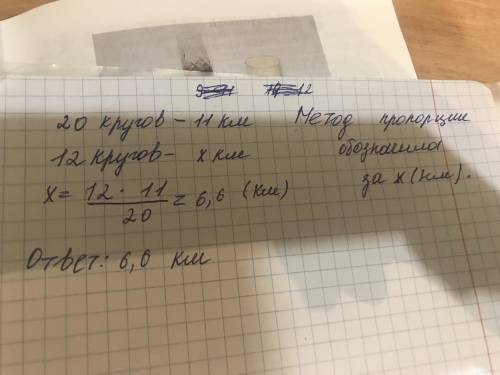 20 кругов – 11 км
12 кругов – х км
х = 12 · 11 / 20 = 6,6 (км)
Ответ: 6,6 км
Метод пропорции
обозначила
за х (км).